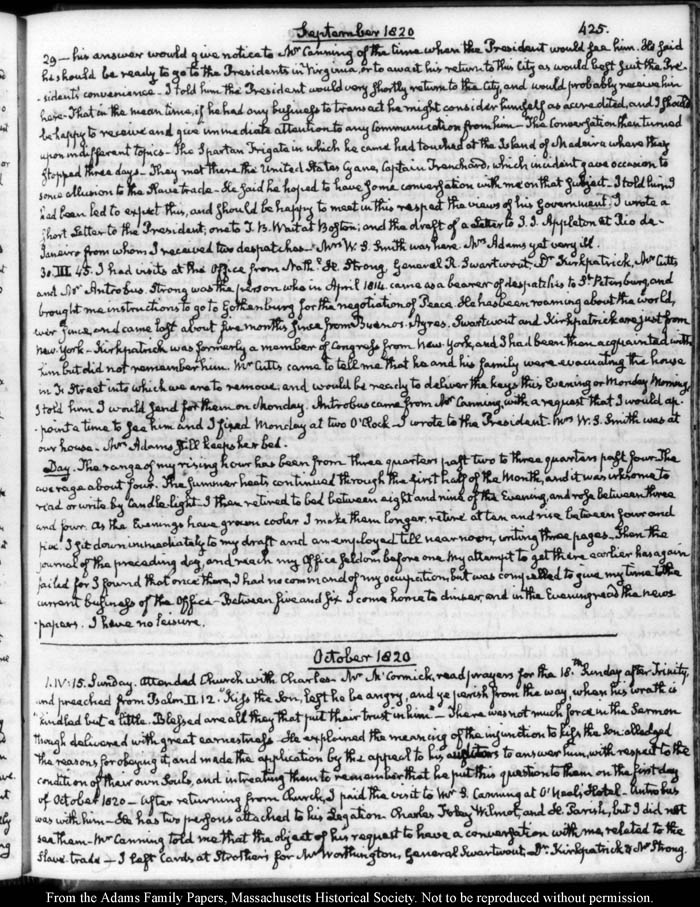 September 1820 425.
29 — his answer would give notice to Mr Canning of the time when the President would see him. He said
he should be ready to go to the Presidents in Virginia, or to await his return to this City as would best suit the Pre-
-sident's convenience. I told him the President would very shortly return to the City, and would probably receive him
here. That in the mean time, if he had any business to transact he might consider himself as accredited, and I should
be happy to receive and give immediate attention to any Communication from him — The Conversation then turned
upon indifferent topics — The Spartan frigate in which he came had touched at the Island of Madeira where they
stopped three days — They met there the United States Cyane, Captain Trenchard, which incident gave occasion to
some allusion to the Slave trade — He said he hoped to have some conversation with me on that subject — I told him I
had been led to expect this, and should be happy to meet in this respect the views of his Government. I wrote a
short Letter to the President, one to T. B. Wait at Boston; and the draft of a Letter to J. J. Appleton at Rio de-
Janeiro from whom I received two despatches. Mrs W. S. Smith was here. Mrs Adams yet very ill.
30. III. 45. I had visits at the Office from Nathl. H. Strong, General R. Swartwout, Dr Kirkpatrick, Mr Cutts
and Mr Antrobus. Strong was the person who in April 1814. came as a bearer of despatches to St. Petersburg, and
brought me instructions to go to Gothenburg for the negotiation of Peace. He has been roaming about the world,
ever since, and came last about five months since from Buenos-Ayres. Swartwout and Kirkpatrick are just from
New-York — Kirkpatrick was formerly a member of Congress from New-York, and I had been then acquainted with
him but did not remember him. Mr Cutts came to tell me that he and his family were evacuating the house
in F. Street into which we are to remove and would be ready to deliver the keys this Evening or Monday Morning.
I told him I would send for them on Monday. Antrobus came from Mr Canning, with a request that I would ap-
-point a time to see him and I fixed Monday at two O'Clock. I wrote to the President. Mrs W. S. Smith was at
our house. Mrs Adams still keeps her bed.
Day. The range of my rising hour has been from three quarters past two to three quarters past four. The
average about four. The summer heats continued through the first half of the Month, and it was irksome to
read or write by Candle-light. I then retired to bed between eight and nine of the Evening, and rose between three
and four. As the Evenings have grown cooler I make them longer, retire at ten and rise between four and
five. I sit down immediately to my draft and am employed till near noon, writing three pages. Then the
journal of the preceding day, and reach my Office seldom before one. My attempt to get there earlier has again
failed for I found that once there, I had no command of my occupation, but was compelled to give my time to the
current business of the Office — Between five and six I come home to dinner, and in the Evening read the news
-papers. I have no leisure.
October 1820
1. IV. 15. Sunday. Attended Church with Charles — Mr McCormick, read prayers for the 18.th Sunday after Trinity,
and preached from Psalm II. 12. "Kiss the Son, lest he be angry, and ye perish from the way, when his wrath is
"kindled but a little. Blessed are all they that put their trust in him" — There was not much force in the Sermon
though delivered with great earnestness. He explained the meaning of the injunction to kiss the Son: alledged
the reasons for obeying it, and made the application by the appeal to his auditors to answer him, with respect to the
condition of their own Souls, and intreating them to remember that he put this question to them on the first day
of October 1820 — After returning from Church, I paid the visit to Mr S. Canning at O'Neal's Hotel. Antrobus
was with him — He has two persons attached to his Legation. Charles Wilmot, and H. Parish, but I did not
see them — Mr Canning told me that the object of his request to have a conversation with me, related to the
Slave-trade — I left Cards at Strother's for Mr Worthington, General Swartwout, Dr. Kirkpatrick & Mr Strong.
From the Adams Family Papers, Massachusetts Historical Society. Not to be reproduced without permission.